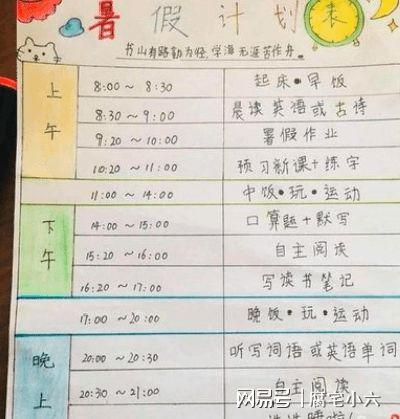 暑假计划表
书山有路勤为径,学海无涯苦作舟。
上午
8:00 ~ 8:30 起床·早饭
8:30 ~ 9:00 晨读英语或古诗
9:20 ~ 10:00 暑假作业
10:20 ~ 11:00 预习新课+练字
11:00 ~ 14:00 中饭·玩·运动
下午
14:00 ~ 15:00 口算题+默写
15:20 ~ 16:00 自主阅读
16:20 ~ 17:00 写读书笔记
17:00 ~ 20:00 晚饭·玩·运动
晚上
20:00 ~ 20:30 听写词语或英语单词
20:30 ~ 21:00 自主阅读
网易号 | 腐宅小六